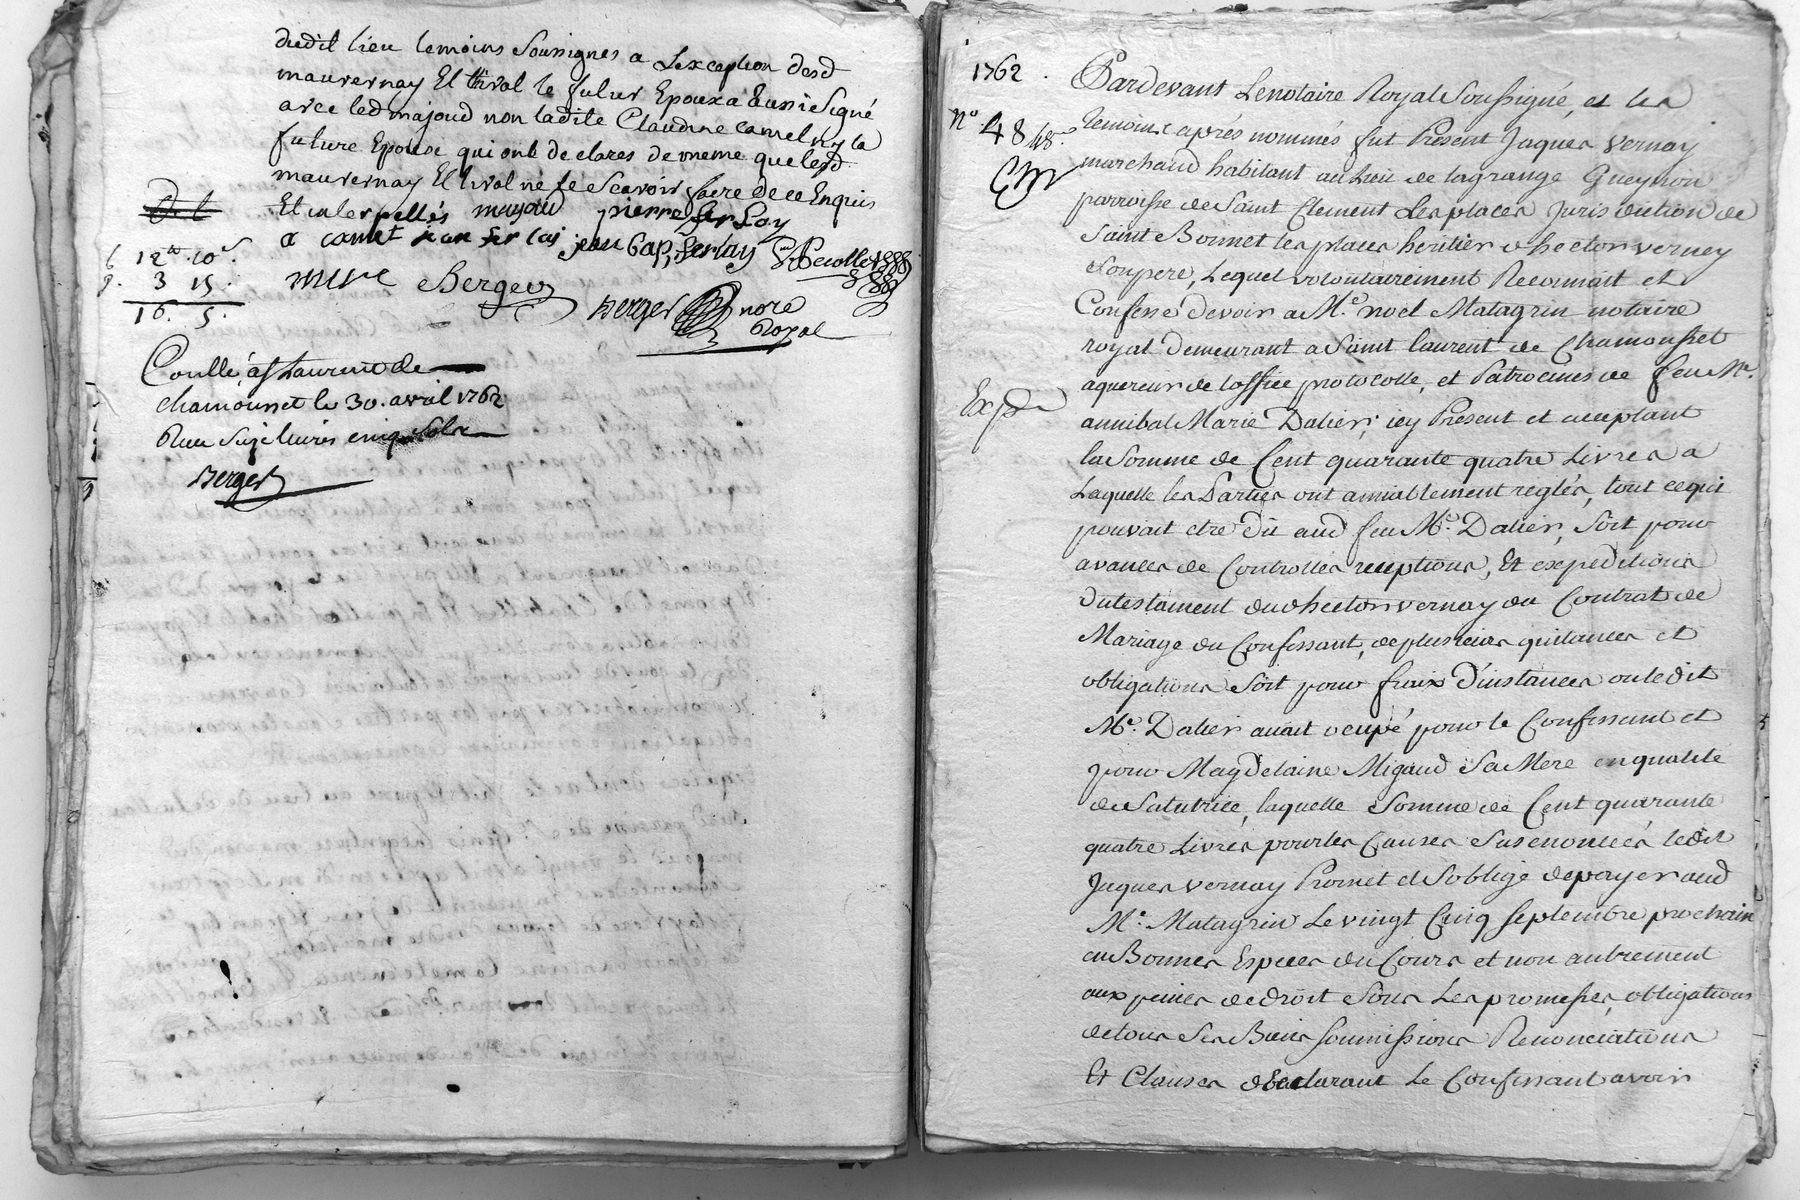 dudit lieu temoins soussignes a Lexception desd
mauvernay Et thival le futur Epoux a aussi signé
avec led majoud non ladite Claudine camel ny la
future Epouse qui ont declares de meme que lesd
mauvernay Et tival ne le scavoir faire de ce Enquis
Et interpellés mayoud pierre ferlay
a camet jean fer lai jean Gap, ferlay
12# 10s
3 15.
16. 5.
Berger
Berger nore
Royal
Conllé, a St Laurent de
chamousset le 30. avril 1762
Reçu six livres cinq sols
Berger
1762.
Pardevant Le notaire Royal Soussigné, et les
No. 48 48e
temoins aprés nommés fut Present Jaques Vernay
marchand habitant au Lieu de lagrange Gueynon
parroisse de Saint Clement Les places Jurisdiction de
Saint Bonnet les places heritier d hector verney
Sonpere, Lequel volontairement Reconnait et
Confesse devoir a Me. noel Matagrin notaire
royal demeurant a Saint laurent de Chamousset
aquereur de loffice protocolle, et Patrocines de feu Me.
Expd
annibal Marie Dalier, icy Present et acceptant
la Somme de Cent quarante quatre Livres a
Laquelle les Parties ont amiablement reglés, tout cequi
pouvait etre dû aud feu Me. Dalier, Soit pour
avances de Controlles receptions, Et expeditions
dutestament dud hector vernay du Contrat de
Mariage du Confessant, de plusieurs quitances et
obligations Soit pour fraix d'instances ou ledit
Me. Dalier avait ocupé pour le Confessant et
pour Magdelaine Migaud Sa Mere en qualité
de Sa tutrice, laquelle Somme de Cent quarante
quatre Livres pour les Causes Susenoncées ledit
Jaques vernay Promet et S'oblige de payer aud
Me. Matagrin Le vingt Cinq Septembre prochain
en Bonnes Especes du Cours et non autrement
aux peines de droit Sous Les promesses, obligations
de tous Ses Biens Soumissions Renonciations
Et Clauses declarant Le Confessant avoir